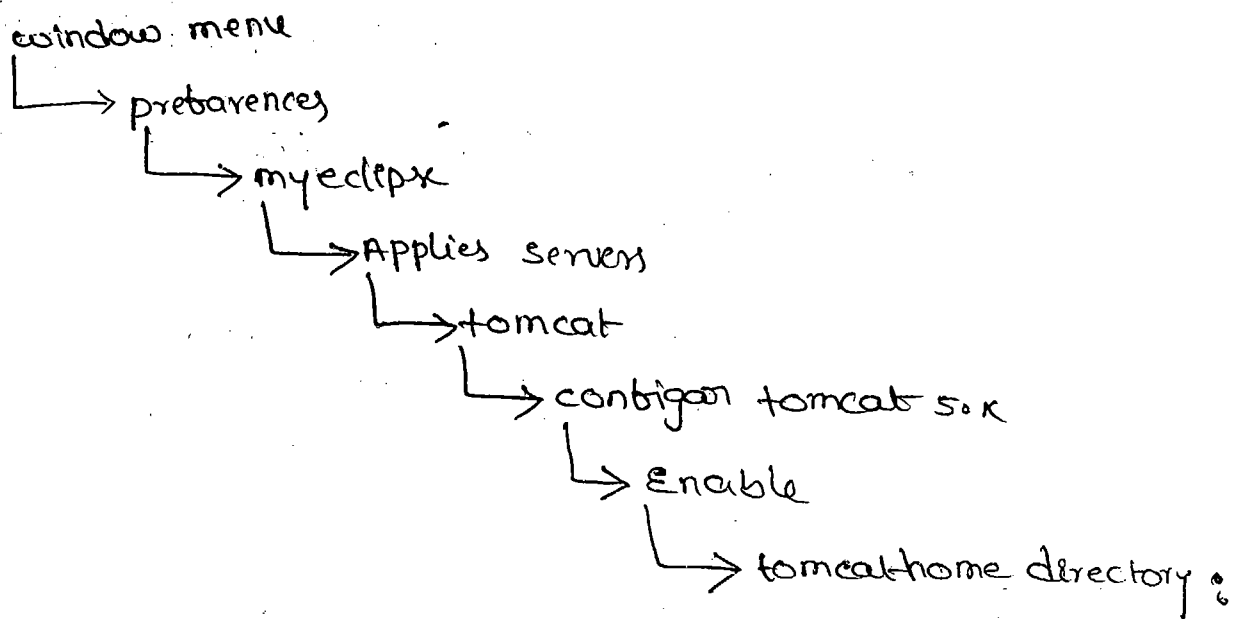 window menu
prebarences
myeclipse
Applies servers
tomcat
contigan tomcat 5.x
Enable
tomcat home directory :